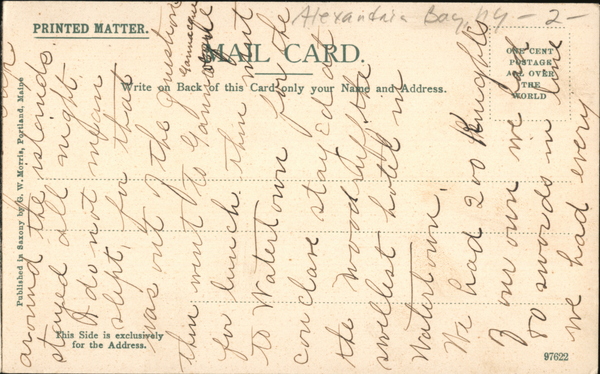 Alexandria Bay, NY - 2 -
PRINTED MATTER.
MAIL CARD.
Write on Back of this Card only your Name and Address.
ONE CENT
POSTAGE
ALL OVER
THE
WORLD
Published in Saxony by G. W. Morris, Portland, Maine
This Side is exclusively
for the Address.
97622
around the islands.
stayed all night.
I do not mean
slept, for that
was out of the question
then went to Gananoque
for lunch then went
to Watertown for the
conclave stay'd at
the Woodruff the
swellest hotel in
Watertown.
We had 200 Knights
of our own we had
80 swords in line
we had every